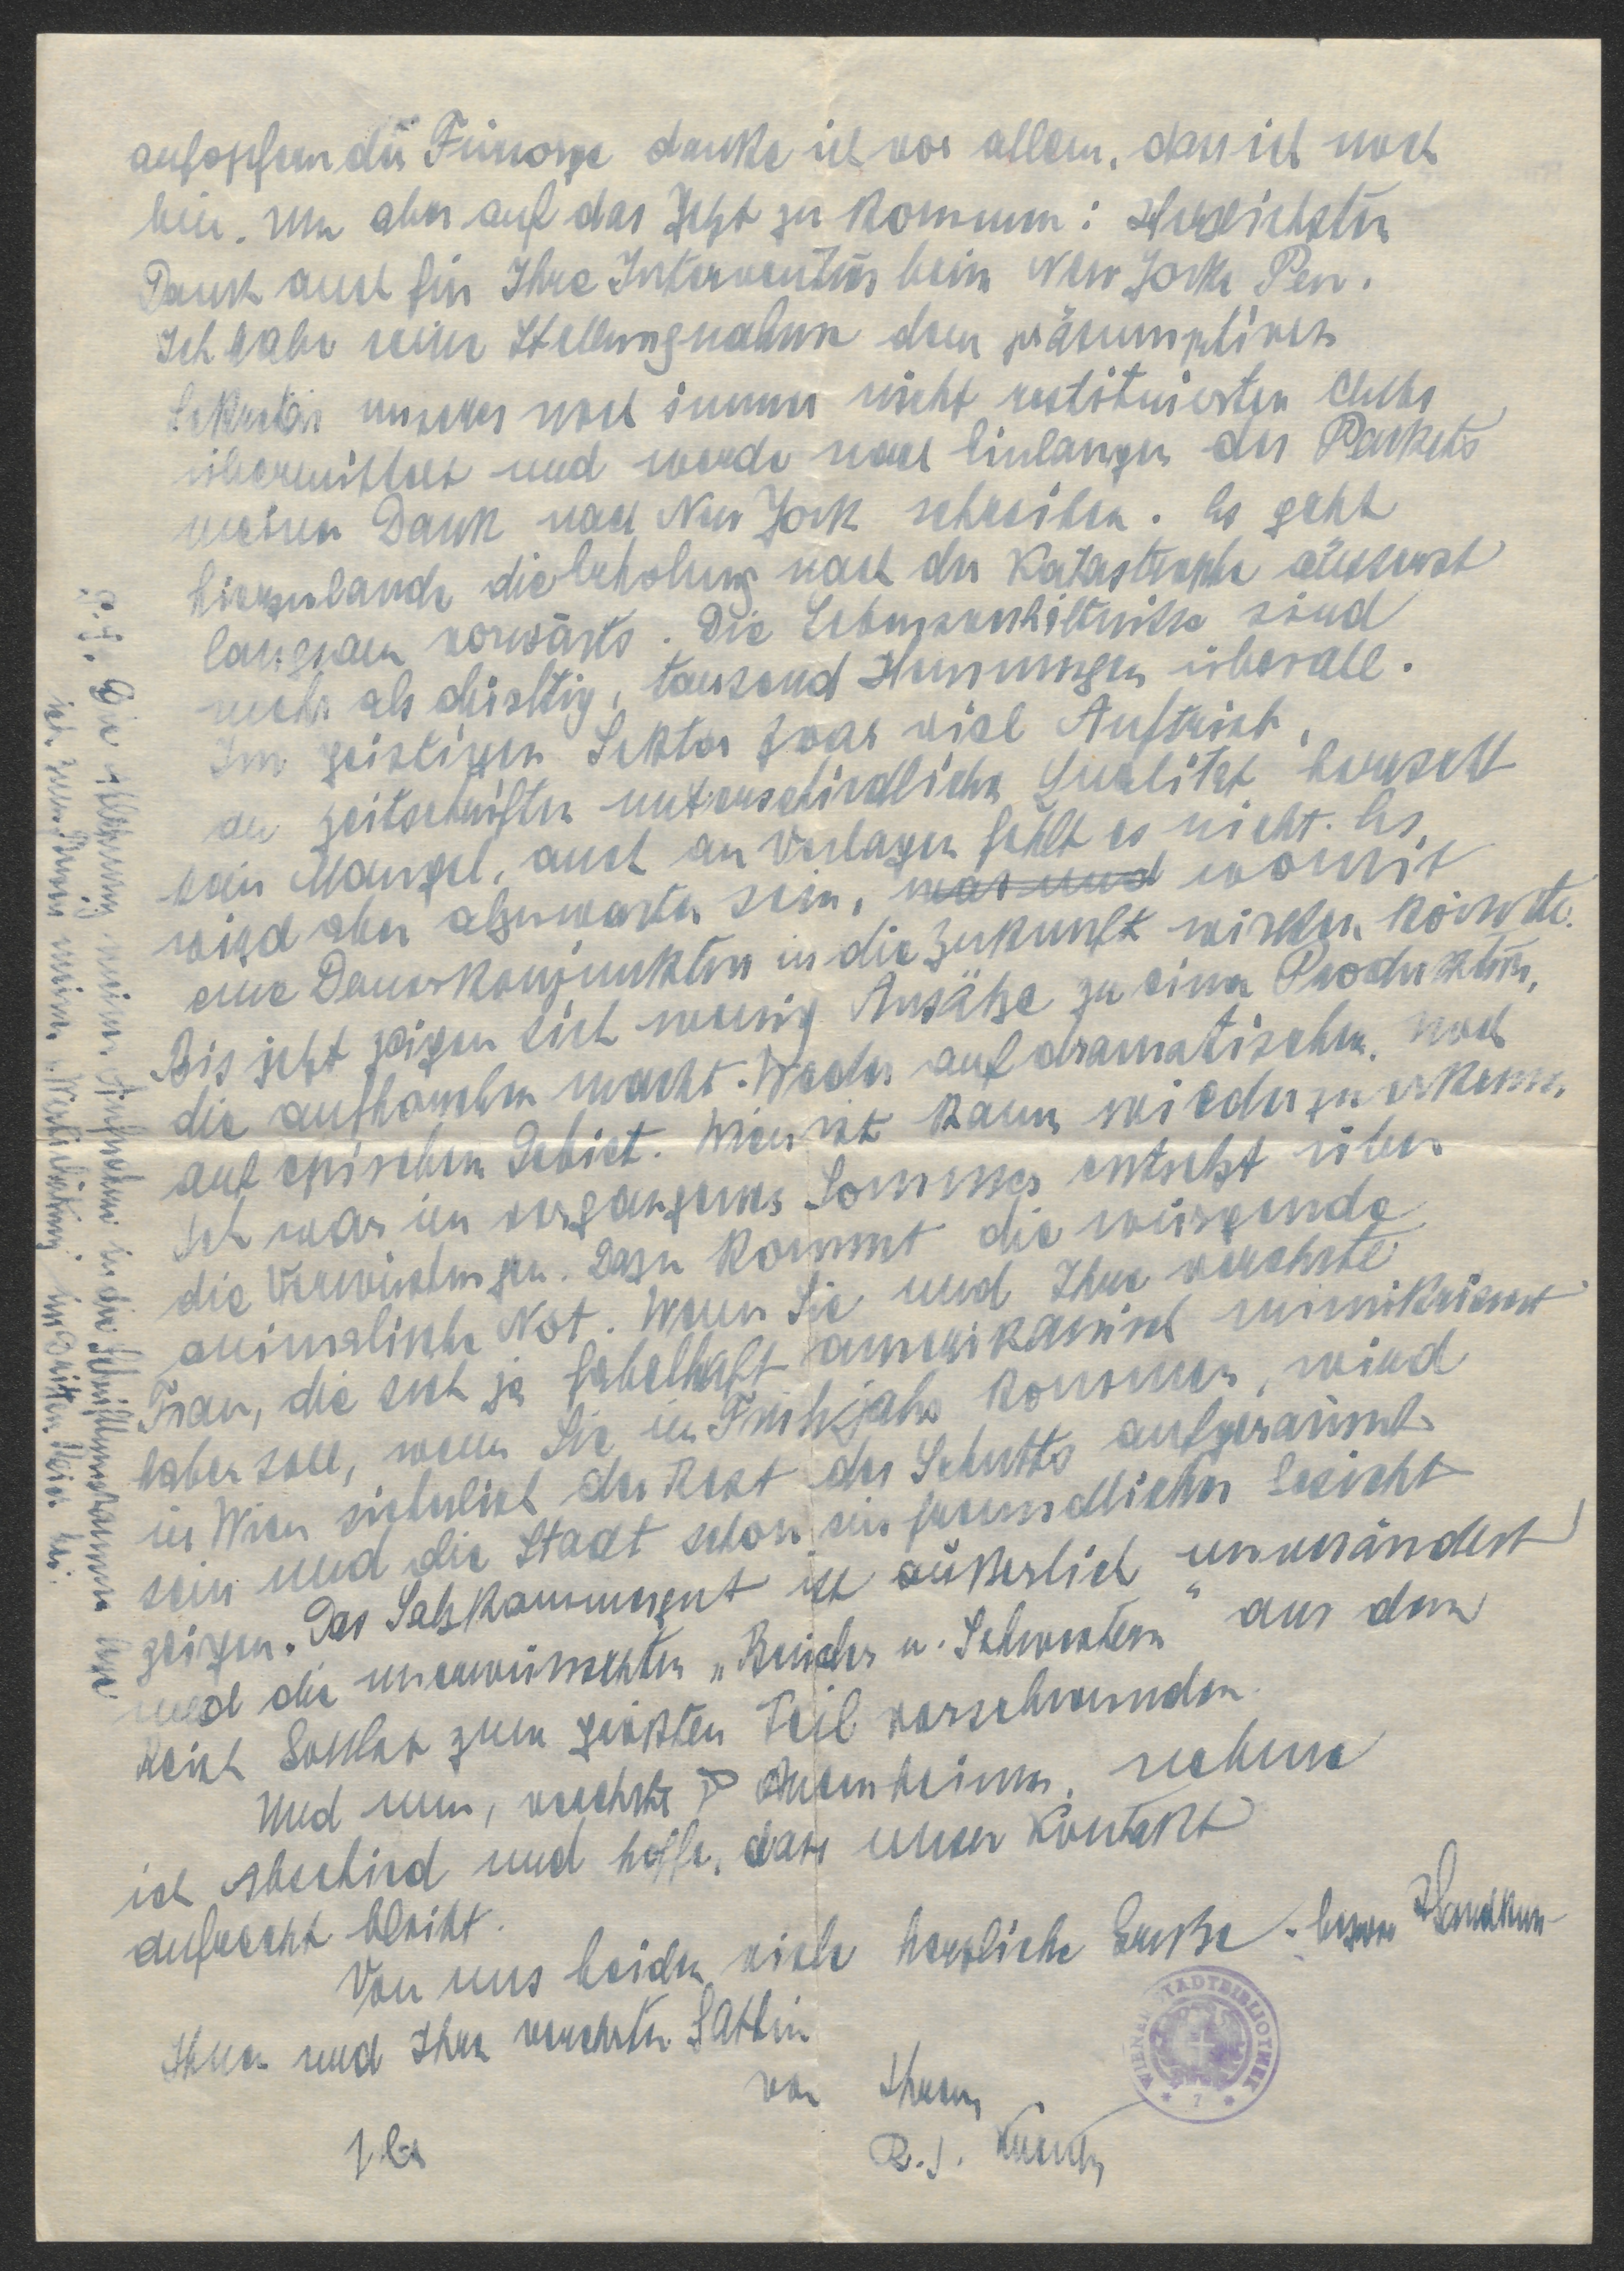 aufopfernder Fürsorge danke ich vor allem, dass ich noch
bin. Nun aber auf das Jetzt zu kommen: Herzlichsten
Dank auch für Ihre Intervention beim New Yorker Pen.
Ich habe seine Stellungnahme dem präsumptiven
Sekretär unseres noch immer nicht restituierten Clubs
übermittelt und werde nach Einlangen des Packets
meinen Dank nach New York schreiben. Es geht
hierzulande die Erholung nach der Katastrophe äusserst
langsam vorwärts. Die Lebensverhältnisse sind
mehr als dürftig, tausend Hemmungen überall.
Im geistigen Sektor zwar viel Auftrieb,
an Zeitschriften unterschiedlicher Qualität herrscht
kein Mangel, auch an Verlagen fehlt es nicht. Es
wird aber abzuwarten sein, was und womit
eine Dauerkonjunktur in die Zukunft wirken könnte.
Bis jetzt zeigen sich wenig Ansätze zu einer Produktion,
die aufhorchen macht. Weder auf dramatischem, noch
auf epischem Gebiet. Wien ist kaum wiederzuerkennen.
Ich war im vergangenen Sommer entsetzt über
die Verwüstungen. Dazu kommt die würgende
animalische Not. Wenn Sie und Ihre verehrte
Frau, die sich ja fabelhaft amerikanisch
haben soll, wenn Sie im Frühjahr kommen, wird
in Wien sicherlich der Rest des Schutts aufgeräumt
sein und die Stadt schon ein freundliches Gesicht
zeigen. Das Salzkammergut ist äußerlich unverändert
und die unerwünschten „Brüder u. Schwestern" aus dem
Reich Gottlob zum größten Teil verschwunden.
Und nun, verehrter Auernheimer, nehme
ich Abschied und hoffe, dass unser Kontakt
aufrecht bleibt.
Von uns beiden viele herzliche Grüße
Ihnen und Ihrer verehrten Gattin
von Ihrem
R. J. Kreutz
WIENER STADTBIBLIOTHEK
* 7 *
P. S. Die Ablehnung meiner Aufnahme in die Schrifttumskammer lege
ich zum Beweis meiner „Wertschätzung" im Dritten Reich bei.